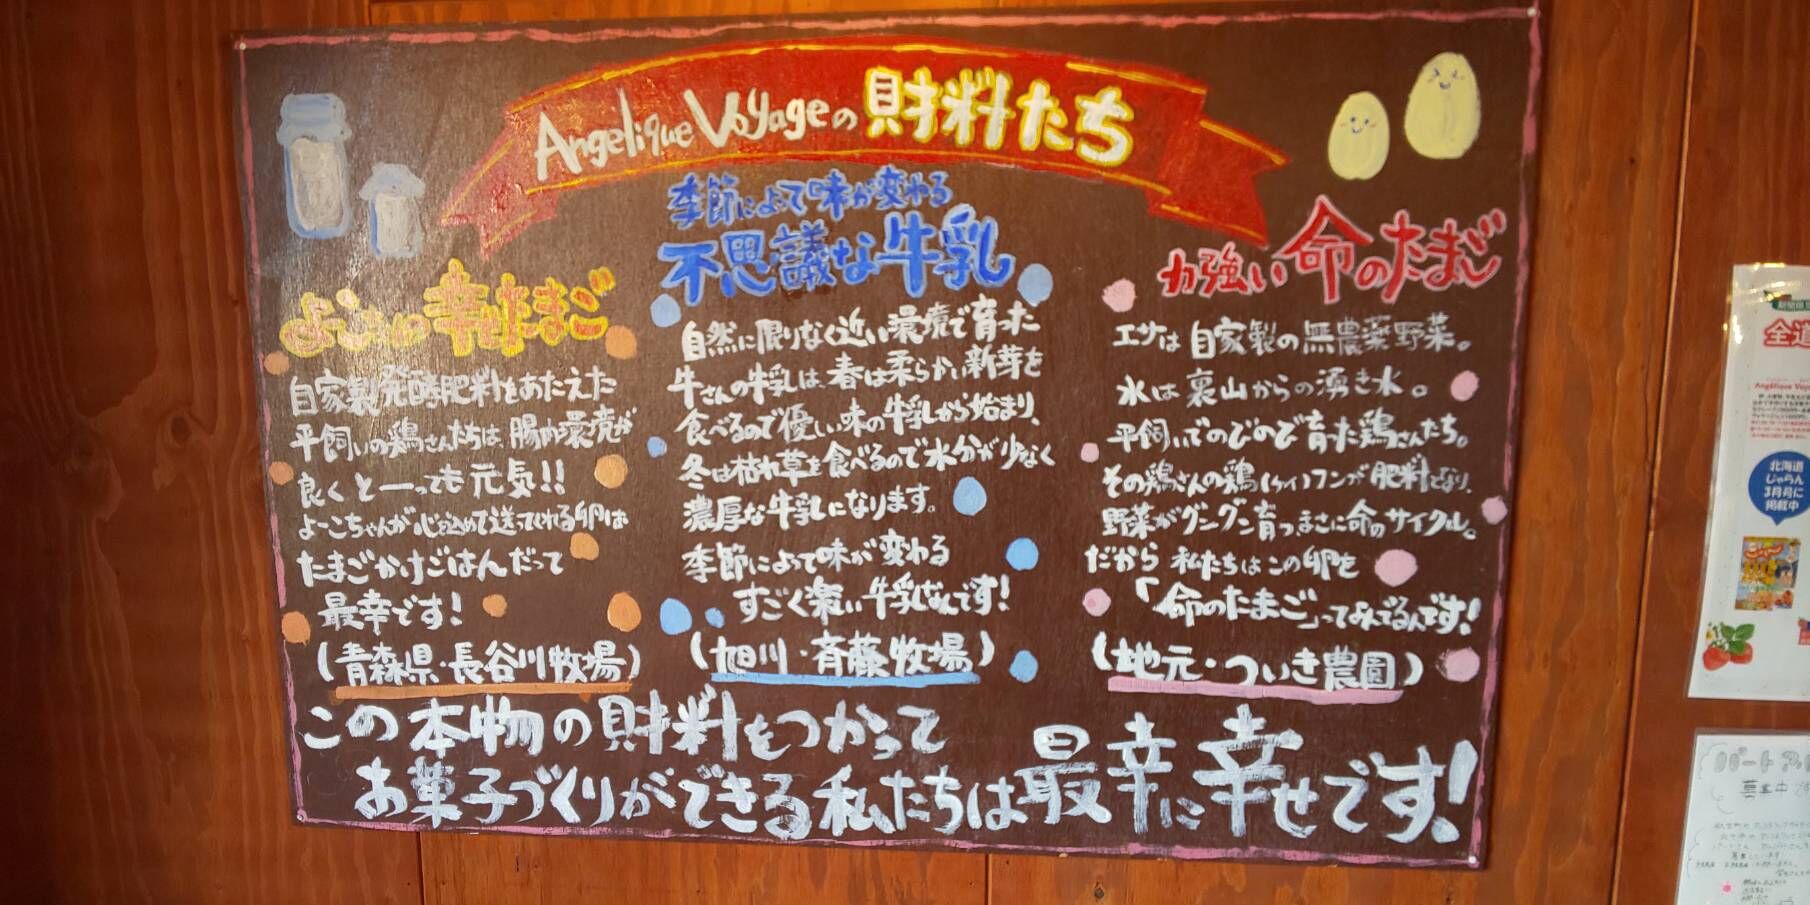 Angelique Voyageの財料たち
よこちゃんの幸せたまご
自家製発酵肥料をあたえた
平飼いの鶏さんたちは、腸内環境が
良くとーっても元気!!
よこちゃんが心を込めて送ってくれる卵は
たまごかけごはんだって
最幸です!
(青森県・長谷川牧場)
季節によって味が変わる
不思議な牛乳
自然に限りなく近い環境で育った
牛さんの牛乳は、春は柔らかい新芽を
食べるので優しい味の牛乳から始まり、
冬は枯れ草を食べるので水分が少なく
濃厚な牛乳になります。
季節によって味が変わる
すごく楽しい牛乳なんです!
(旭川・斉藤牧場)
力強い命のたまご
エサは自家製の無農薬野菜。
水は裏山からの湧き水。
平飼いでのびのび育った鶏さんたち。
その鶏さんの鶏(ケイ)フンが肥料となり、
野菜がグングン育つ、まさに命のサイクル。
だから私たちはこの卵を
「命のたまご」ってよんでるんです!
(地元・ついき農園)
この本物の財料をつかって
お菓子づくりができる私たちは最幸に幸せです!
全道
Angelique Voya
北海道
じゃらん
3月号に
掲載中
パート
募集中